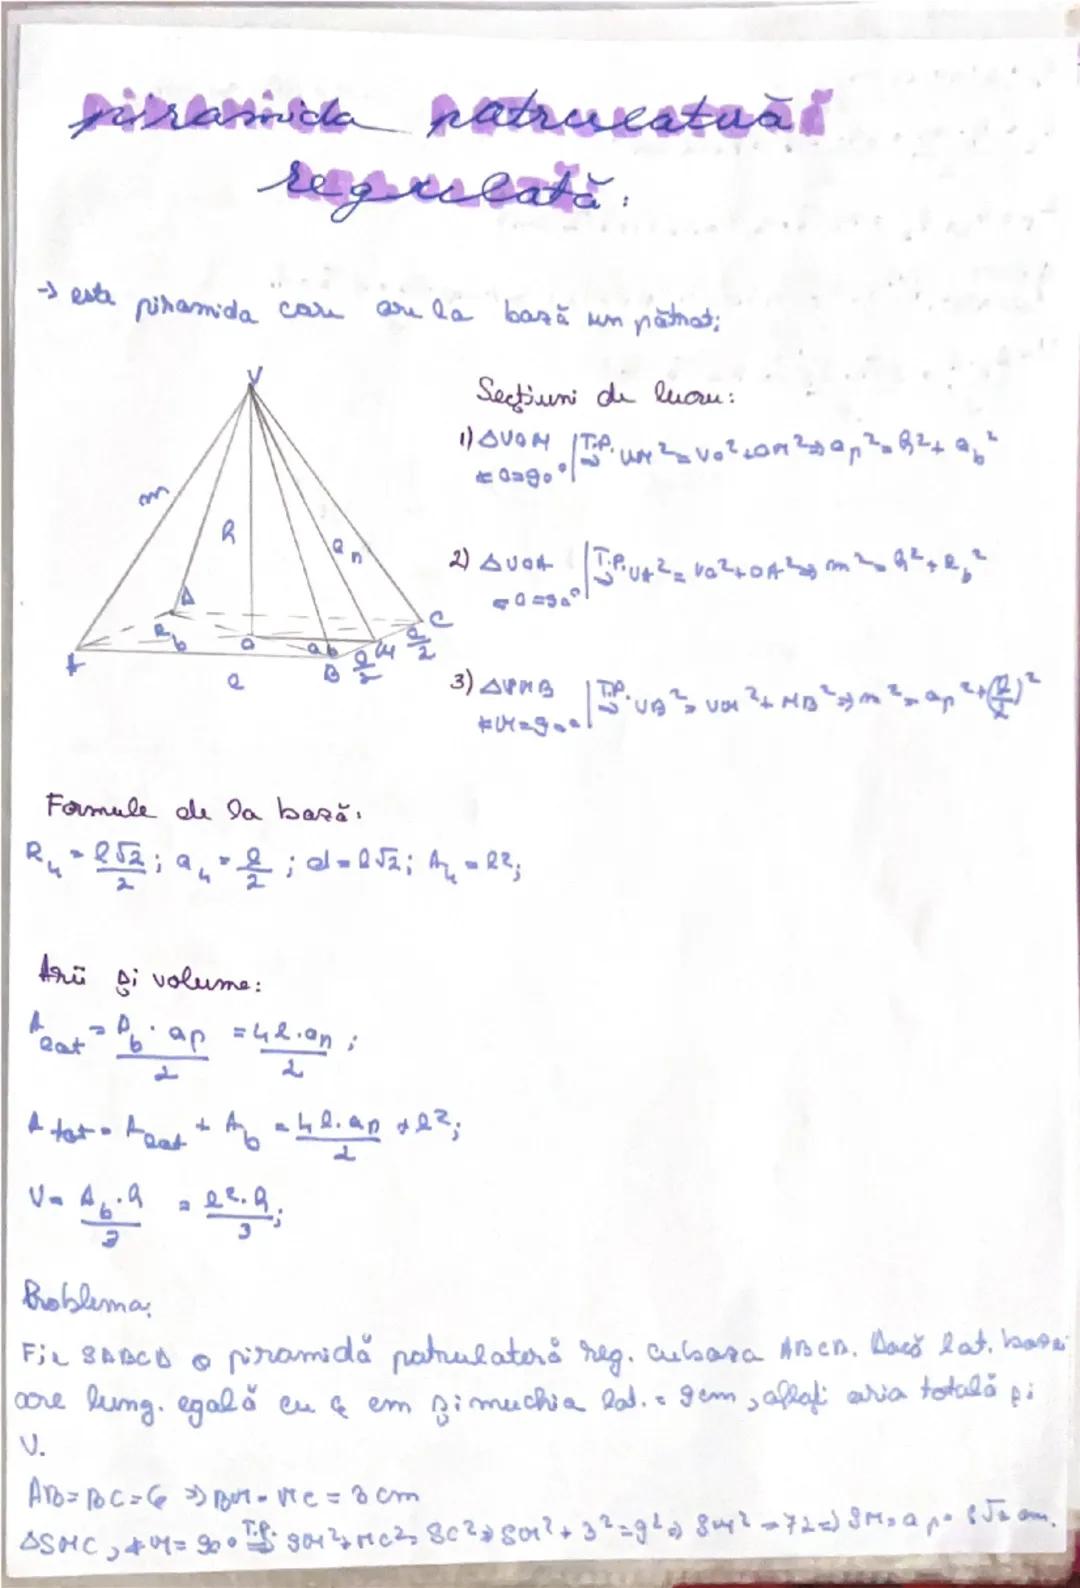 piramida patrulatuă
regulată:
→ este piramida care are la bază un pătrat;
V
m
h
ap
D
Rb
O
ab
M
C
l/2
l/2
A
B
l
Secțiuni de lucru:
1) ΔVOM | T.P. ⇒ VM² = VO² + OM² ⇒ ap² = h² + ab²
∢O = 90°
2) ΔVOA | T.P. ⇒ VA² = VO² + OA² ⇒ m² = h² + Rb²
∢O = 90°
3) ΔVMB | T.P. ⇒ VB² = VM² + MB² ⇒ m² = ap² + (l/2)²
∢M = 90°
Formule de la bază:
R₄ = l√2/2 ; a₄ = l/2 ; d = l√2; A₄ = l²;
Arii și volume:
Alat = Pb · ap / 2 = 4l · ap / 2 ;
Atot = Alat + Ab = 4l · ap / 2 + l²;
V = Ab · h / 3 = l² · h / 3 ;
Problema:
Fie SABCD o piramidă patrulateră reg. cu baza ABCD. Dacă lat. bazei
are lung. egală cu 6 cm și muchia lat. = 9cm, aflați aria totală și
V.
AB = BC = 6 ⇒ BM = MC = 3 cm
ΔSMC, ∢M = 90° T.P. ⇒ SM² + MC² = SC² ⇒ SM² + 3² = 9² ⇒ SM² = 72 ⇒ SM = ap = 6√2 cm.